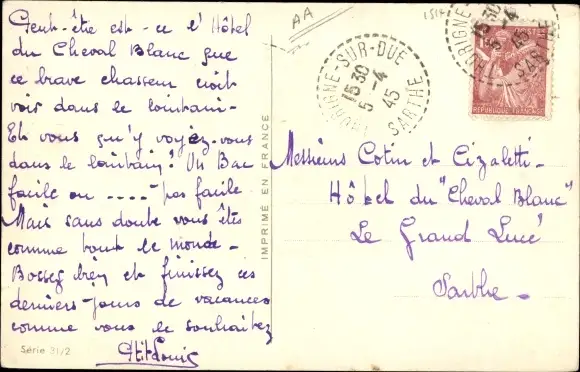 Peut-être est-ce l'Hôtel
du Cheval Blanc que
ce brave chasseur croit
voir dans le lointain-
Et vous qu'y voyez-vous
dans le lointain? Un Bac
facile ou ....- pas facile
Mais sans doute vous êtes
comme tout le monde-
Bossez bien et finissez ces
derniers-jours de vacances
comme vous le souhaitez
Série 31/2
IMPRIMÉ EN FRANCE
AA
15 30
5-4
45
SARTHE
15 30
5-4
45
RÉPUBLIQUE FRANÇAISE
Messieurs Cotin et Cizaletti-
Hôtel du "Cheval Blanc"
Le Grand Lucé
Sarthe-